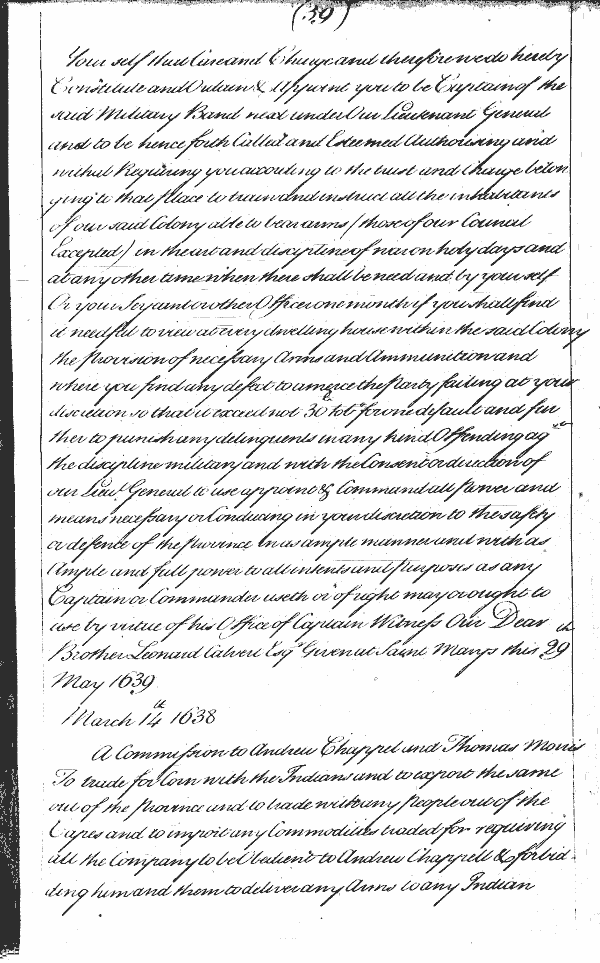 (39)
Your self that Care and Charge and therefore we do hereby
Constitute and Ordain & Appoint you to be Captain of the
said Military Band next under Our Lieutenant General
and to be hence forth Called and Esteemed Authorising and
withal Requiring you according to the trust and Charge belon
ging to that place to train and instruct all the inhabitants
of our said Colony able to bear arms (those of our Council
Excepted) in the art and discipline of war on holy days and
at any other time when there shall be need and by your self
Or your Serjeant or other Officer one month if you shall find
it needful to view at every dwelling house within the said Colony
the Provision of necessary Arms and Ammunition and
where you find any defect to amerce the Party failing at your
discretion so that it exceed not 30 lbs tobo for one default and fur
ther to punish any delinquents in any kind Offending agst
the discipline military and with the Consent or direction of
our Lieut General to use appoint & Command all Power and
means necessary or Conducing in your discretion to the safety
or defence of the Province in as ample manner and with as
Ample and full power to all intents and Purposes as any
Captain or Commander useth or of right may or ought to
use by virtue of his Office of Captain Witness Our Dear
Brother Leonard Calvert Esqr Given at Saint Marys this 29th
May 1639
March 14th 1638
A Commission to Andrew Chappel and Thomas Morris
To trade for Corn with the Indians and to export the same
out of the Province and to trade with any People out of the
Capes and to import any Commodities traded for requiring
all the Company to be Obedient to Andrew Chappell & forbid-
ding him and them to deliver any Arms to any Indian